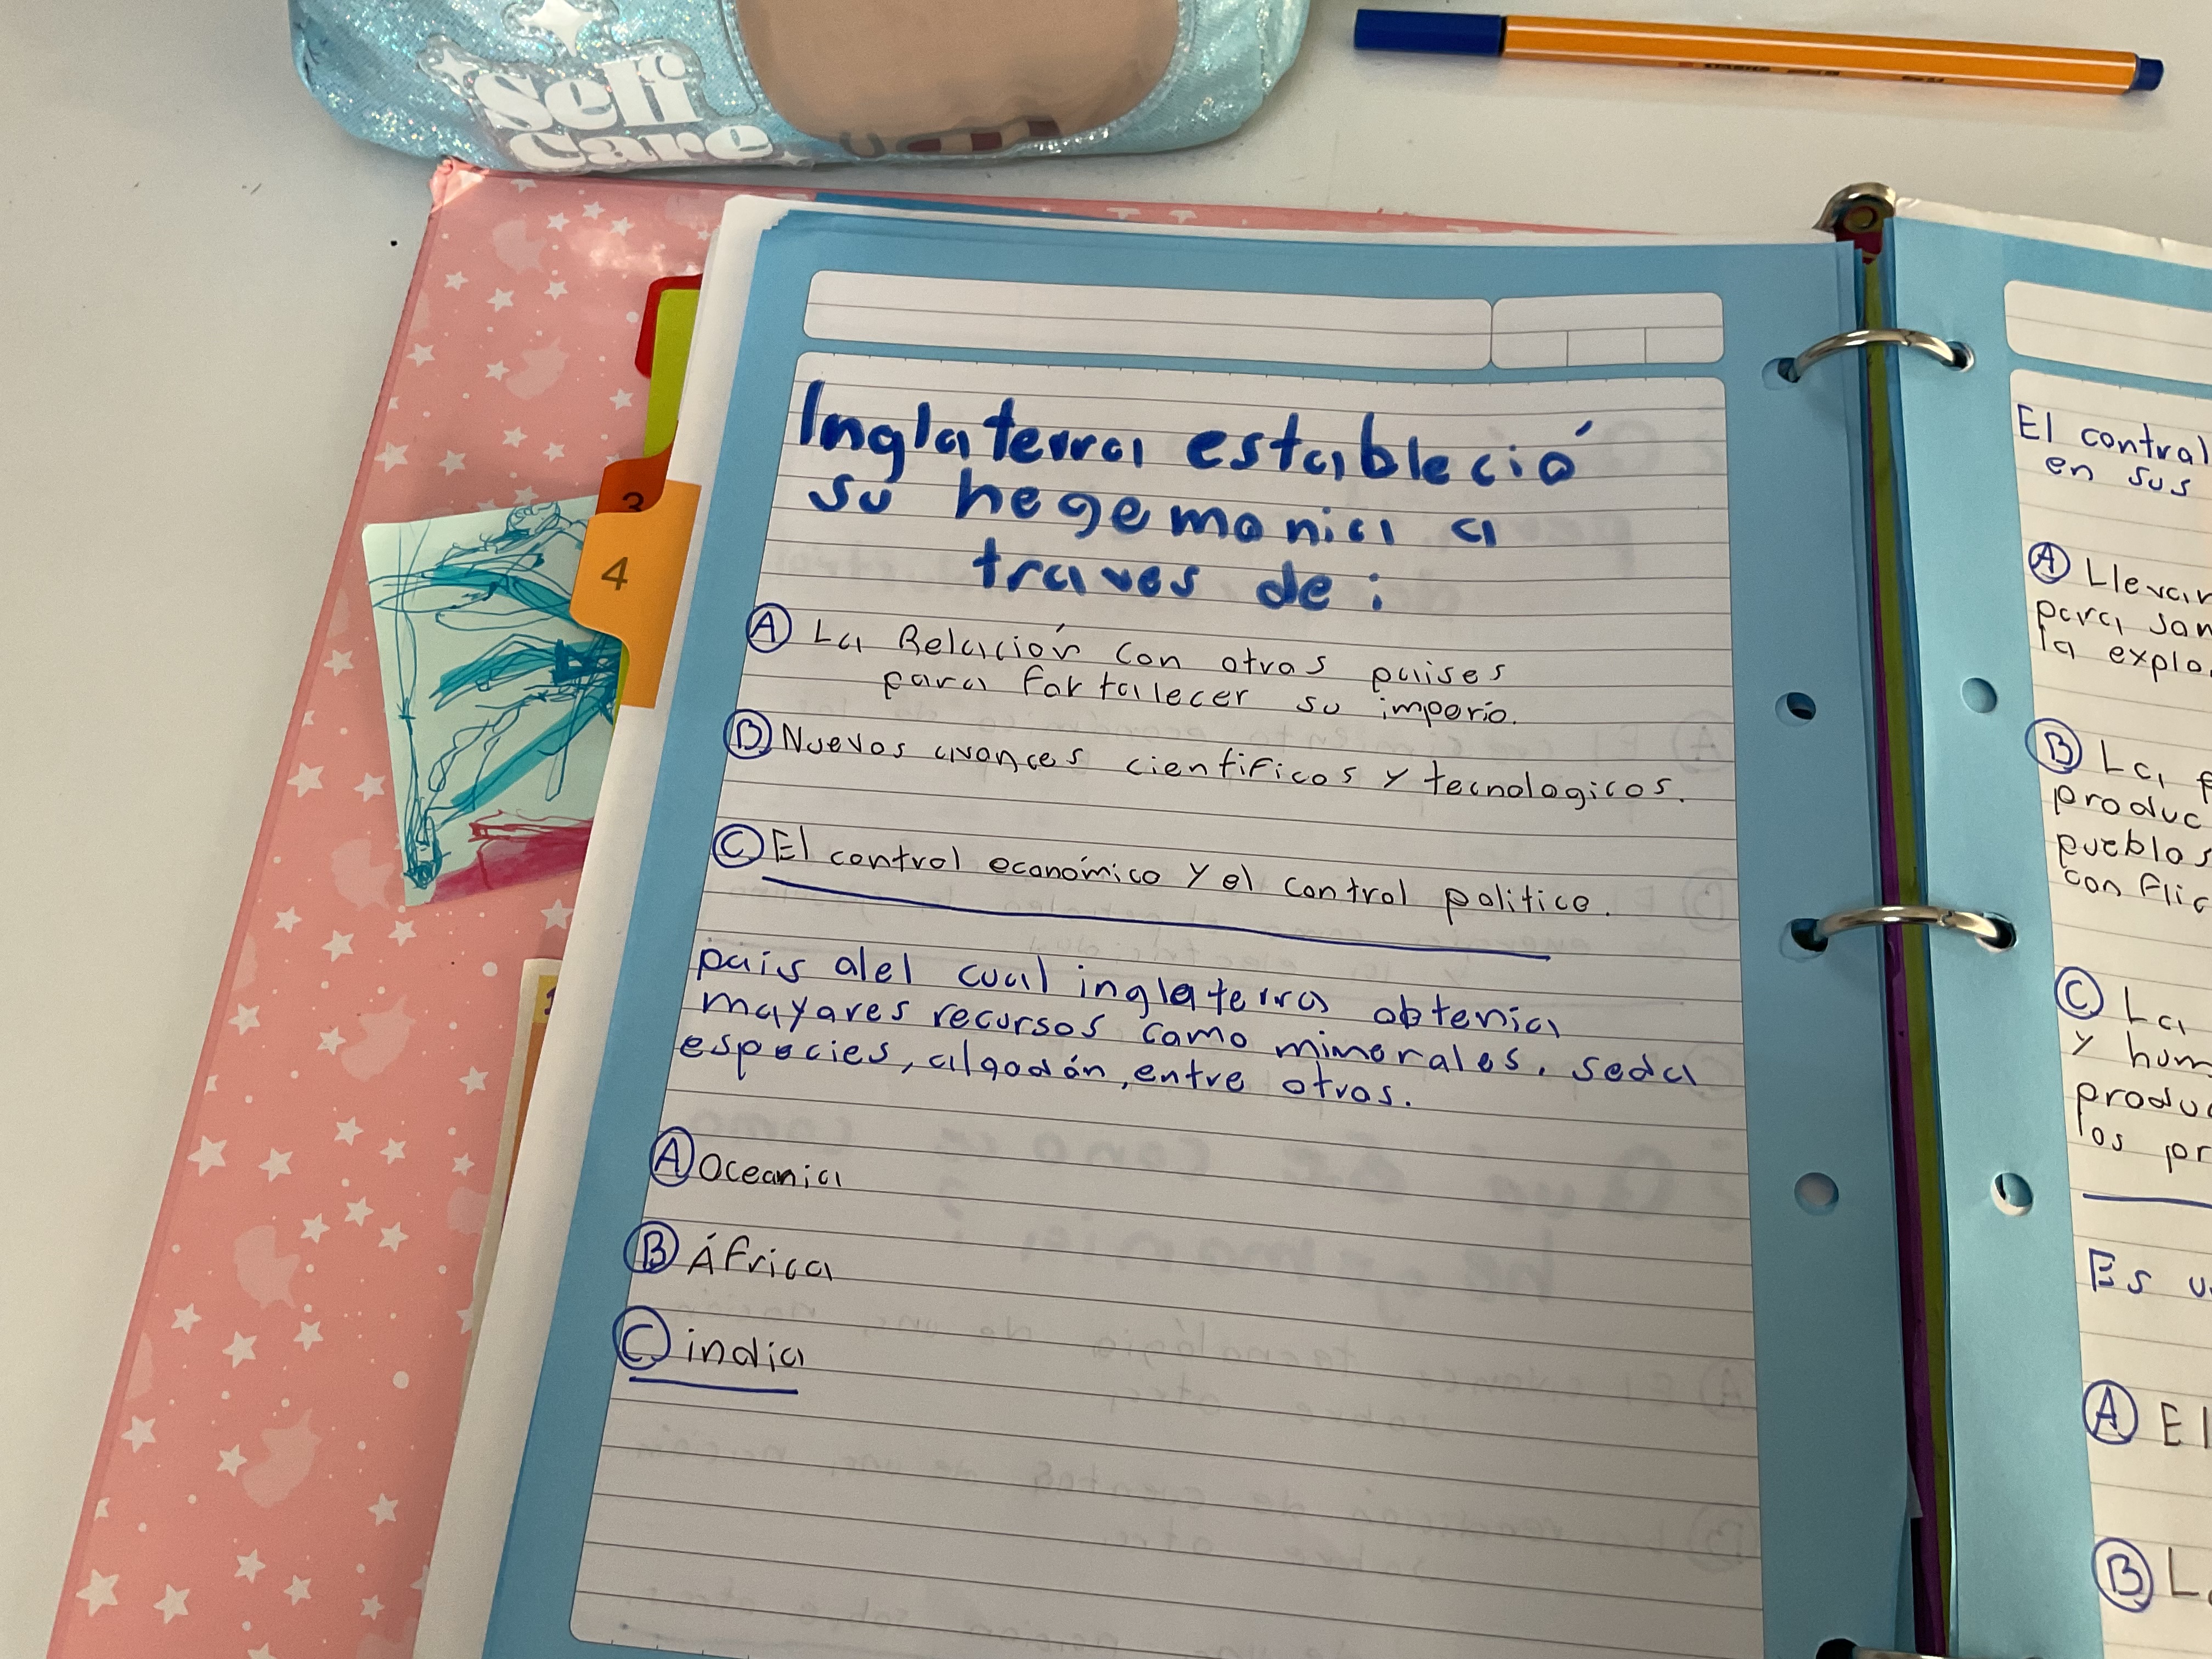 Self
Care
3
4
Inglaterra estableció
su hegemonia a
traves de :
A La Relación con otros paises
para fortalecer su imperio.
B Nuevos avances cientificos y tecnologicos.
C El control económico y el control politico.
pais del cual inglaterra obtenia
mayores recursos como minerales, seda
especies, algodón, entre otros.
A Oceania
B África
C india
El control
en sus
A Llevar
para
la
B La
produc
pueblos
con flic
C La
y hum
produ
los pr
Es u
A El
B L